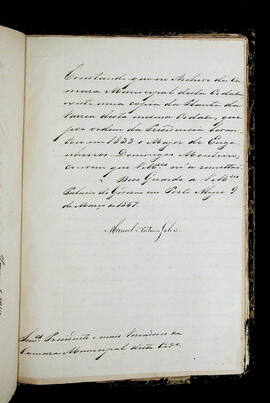 Constando que no Archivo da Ca-
mara Municipal desta Cidade
existe uma copia da Planta da
Varzea desta mesma Cidade, que
por ordem da Presidencia levan-
tou em 1833 o Major de Enge-
nheiros Domingos Monteiro,
convem que V.Mces m'a remettão.
Deos Guarde a V.Mces
Palacio do Governo em Porto Alegre 9
de Março de 1847.
Manoel Antonio Galvão
Snres Presidente e mais Vereadores da
Camara Municipal desta Cide.